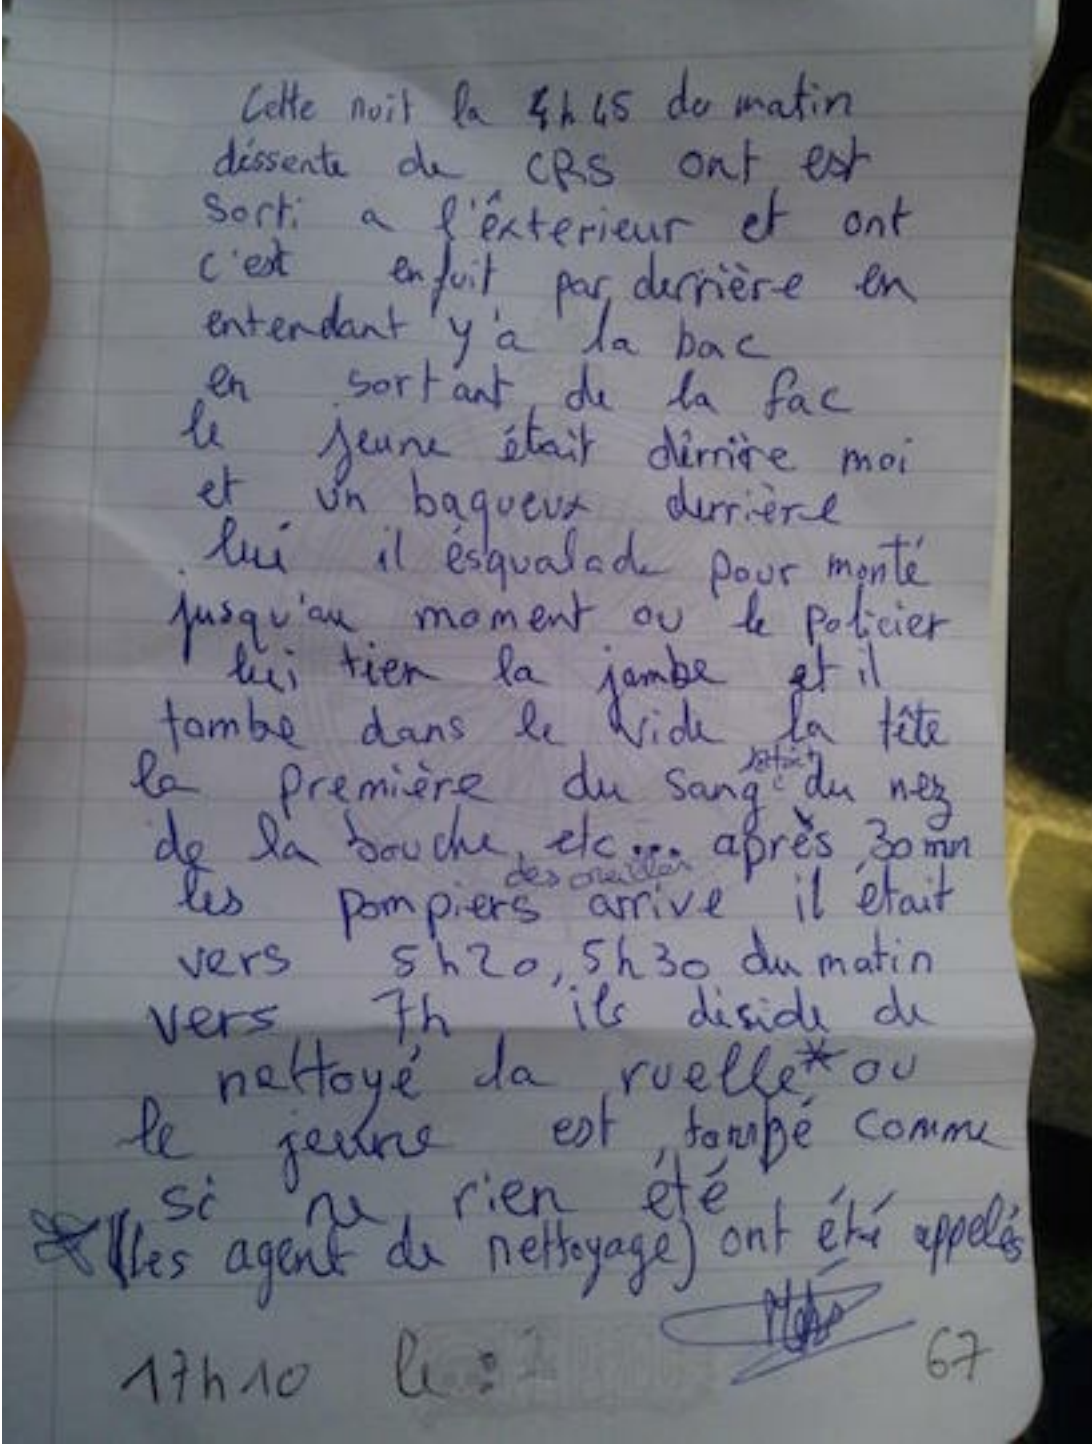 Cette nuit la 4h45 du matin
déssente de CRS ont est
sorti a l'éxterieur et ont
c'est enfuit par derrière en
entendant y'a la bac
en sortant de la fac
le jeune était dérrière moi
et un baqueux derrière
lui il ésqualade pour monté
jusqu'au moment ou le policier
lui tien la jambe et il
tombe dans le vide la tête
la première du sang sortait du nez
de la bouche, etc... après 30mn
des oreilles
les pompiers arrive il était
vers 5h20, 5h30 du matin
vers 7h ils diside de
nettoyé la ruelle* ou
le jeune est tombé comme
si ne rien été
* (les agent de nettoyage) ont été appelés
17h10 le : 67